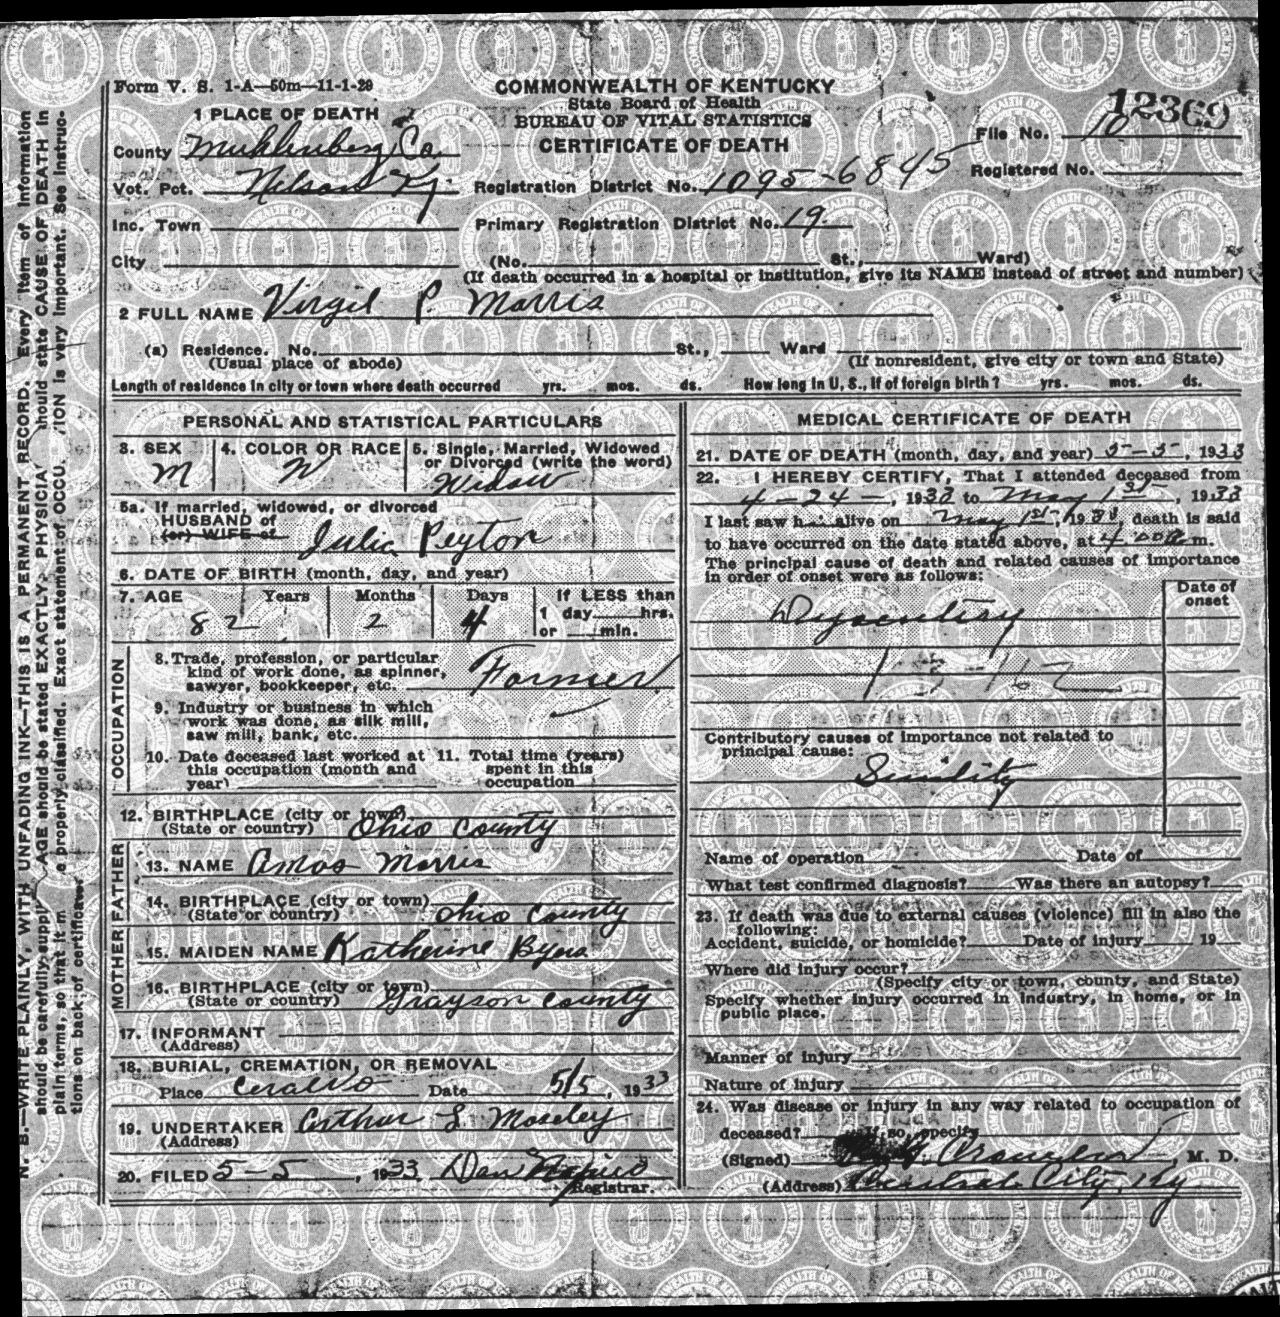 Form V. S. 1-A—50m—11-1-29
COMMONWEALTH OF KENTUCKY
State Board of Health
BUREAU OF VITAL STATISTICS
CERTIFICATE OF DEATH
File No. 10 12369
Registered No.
1 PLACE OF DEATH
County Muhlenberg Co.
Vot. Pct. Nelson Ky.
Registration District No. 1095-6845
Inc. Town
Primary Registration District No. 19
City (No. St., Ward)
(If death occurred in a hospital or institution, give its NAME instead of street and number)
2 FULL NAME Virgil P. Morris
(a) Residence. No. St., Ward
(Usual place of abode) (If nonresident, give city or town and State)
Length of residence in city or town where death occurred yrs. mos. ds. How long in U. S., if of foreign birth? yrs. mos. ds.
PERSONAL AND STATISTICAL PARTICULARS
3. SEX 4. COLOR OR RACE 5. Single, Married, Widowed
or Divorced (write the word)
M W Widow
5a. If married, widowed, or divorced
HUSBAND of
(or) WIFE of
Julia Peyton
6. DATE OF BIRTH (month, day, and year)
7. AGE Years Months Days If LESS than
1 day hrs.
or min.
82 2 4
OCCUPATION
8. Trade, profession, or particular
kind of work done, as spinner,
sawyer, bookkeeper, etc. Farmer
9. Industry or business in which
work was done, as silk mill,
saw mill, bank, etc.
10. Date deceased last worked at 11. Total time (years)
this occupation (month and spent in this
year) occupation
12. BIRTHPLACE (city or town)
(State or country) Ohio County
FATHER
13. NAME Amos Morris
14. BIRTHPLACE (city or town)
(State or country) Ohio County
MOTHER
15. MAIDEN NAME Katherine Byers
16. BIRTHPLACE (city or town)
(State or country) Grayson County
17. INFORMANT
(Address)
18. BURIAL, CREMATION, OR REMOVAL
Place Ceralvo Date 5/5, 1933
19. UNDERTAKER Arthur L. Moseley
(Address)
20. FILED 5-5, 1933. Dan
Registrar.
MEDICAL CERTIFICATE OF DEATH
21. DATE OF DEATH (month, day, and year) 5-5-, 1933
22. I HEREBY CERTIFY, That I attended deceased from
4-24-, 1933 to May 1st, 1933
I last saw h alive on May 1st, 1933, death is said
to have occurred on the date stated above, at 4 m.
The principal cause of death and related causes of importance
in order of onset were as follows:
Date of
onset
Dysentery
Contributory causes of importance not related to
principal cause:
Senility
Name of operation Date of
What test confirmed diagnosis? Was there an autopsy?
23. If death was due to external causes (violence) fill in also the
following:
Accident, suicide, or homicide? Date of injury 19
Where did injury occur?
(Specify city or town, county, and State)
Specify whether injury occurred in industry, in home, or in
public place.
Manner of injury
Nature of injury
24. Was disease or injury in any way related to occupation of
deceased? If so, specify
(Signed) M. D.
(Address) Central City, Ky
N. B.—WRITE PLAINLY, WITH UNFADING INK—THIS IS A PERMANENT RECORD. Every item of information
should be carefully supplied. AGE should be stated EXACTLY. PHYSICIA should state CAUSE OF DEATH in
plain terms, so that it m e properly classified. Exact statement of OCCU. TION is very important. See instruc-
tions on back of certificate.